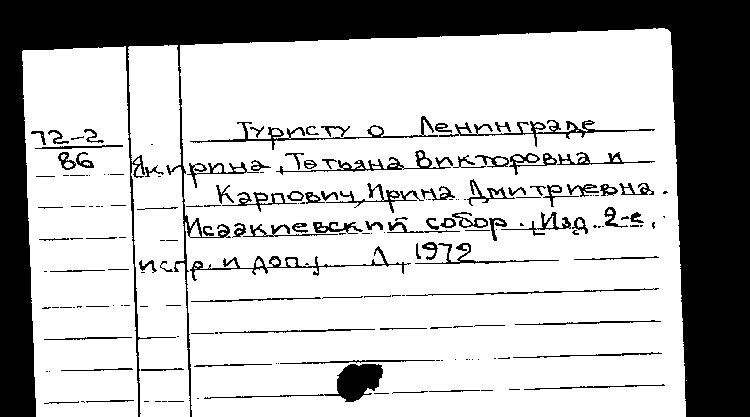 Туристу о Ленинграде
72-2
86
Якирина, Тетьяна Викторовна и
Карпович, Ирина Дмитриевна.
Исаакиевский собор. [Изд. 2-е,
испр. и доп.]. Л, 1972